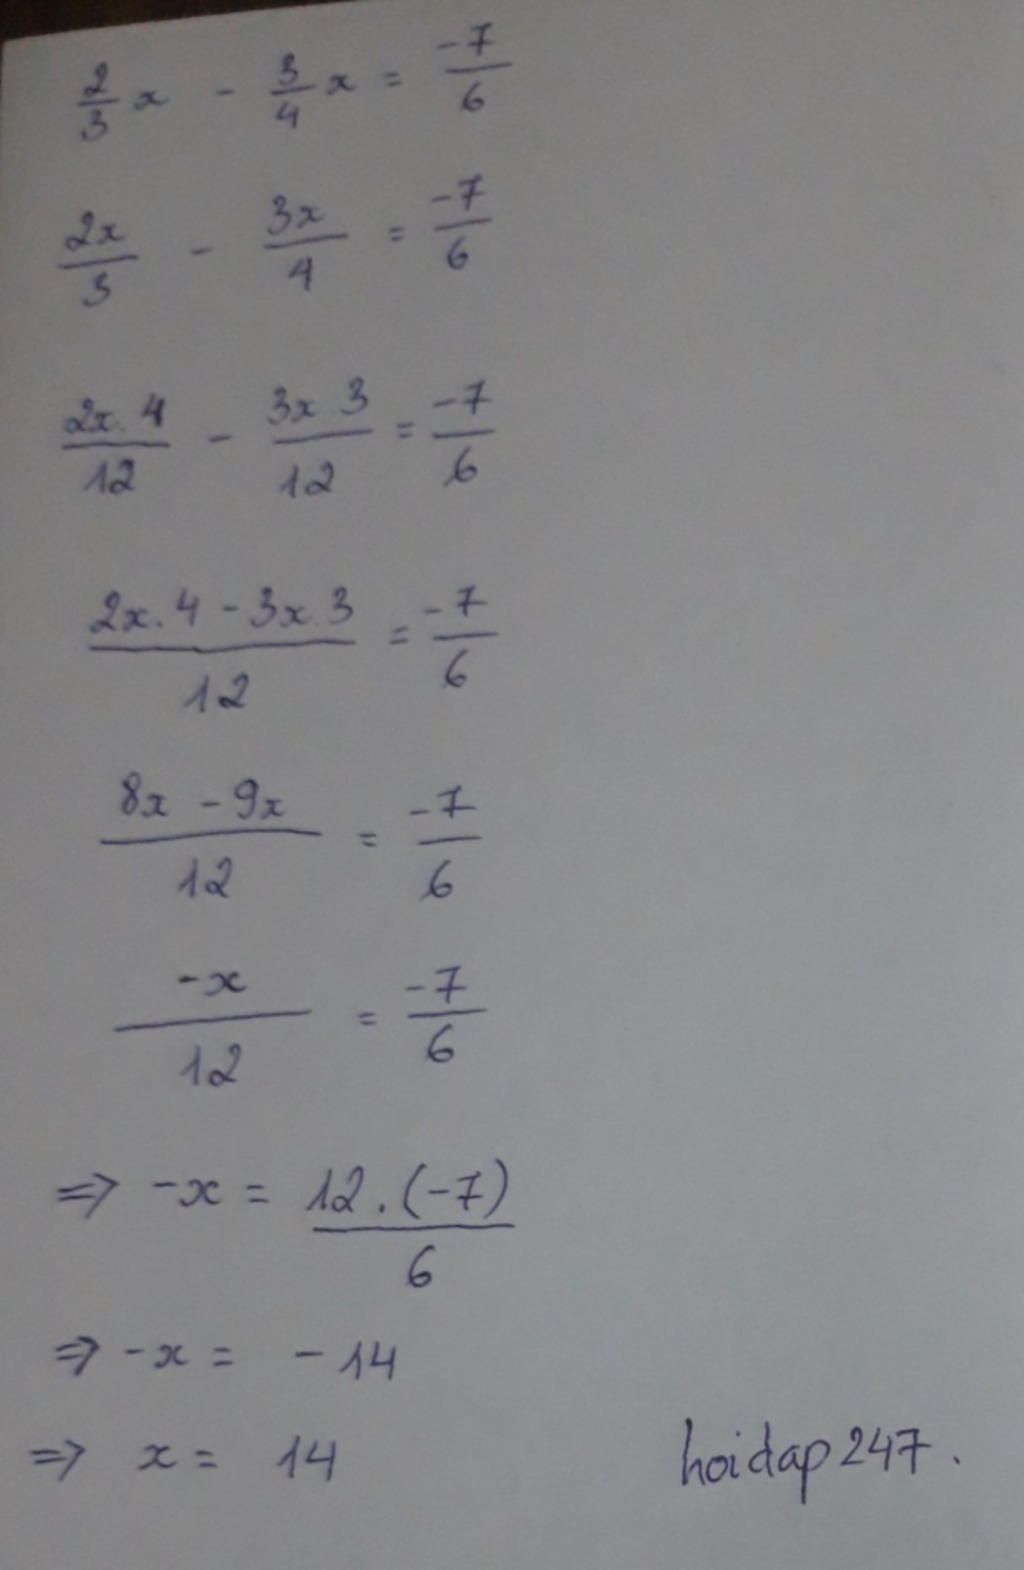 2/3 x - 3/4 x = -7/6
2x/3 - 3x/4 = -7/6
2x.4/12 - 3x.3/12 = -7/6
2x.4 - 3x.3/12 = -7/6
8x - 9x/12 = -7/6
-x/12 = -7/6
=> -x = 12.(-7)/6
=> -x = -14
=> x = 14
hoidap247.